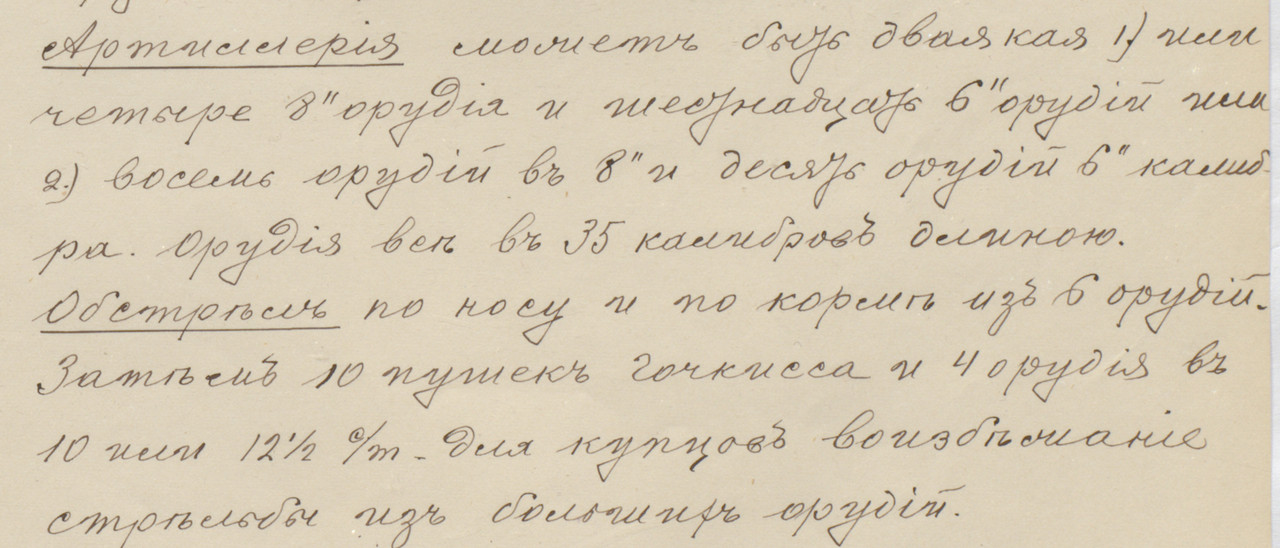 Артиллерія можетъ быть дваякая 1) или
четыре 8" орудія и шестнадцать 6" орудій или
2.) восемь орудій въ 8" и десять орудій 6" калиб-
ра. Орудія все въ 35 калибровъ длиною.
Обстрѣлъ по носу и по кормѣ изъ 6 орудій.
Затѣмъ 10 пушекъ Гочкисса и 4 орудія въ
10 или 12½ с/m - для купцовъ воизбѣжаніе
стрѣльбы изъ большихъ орудій.